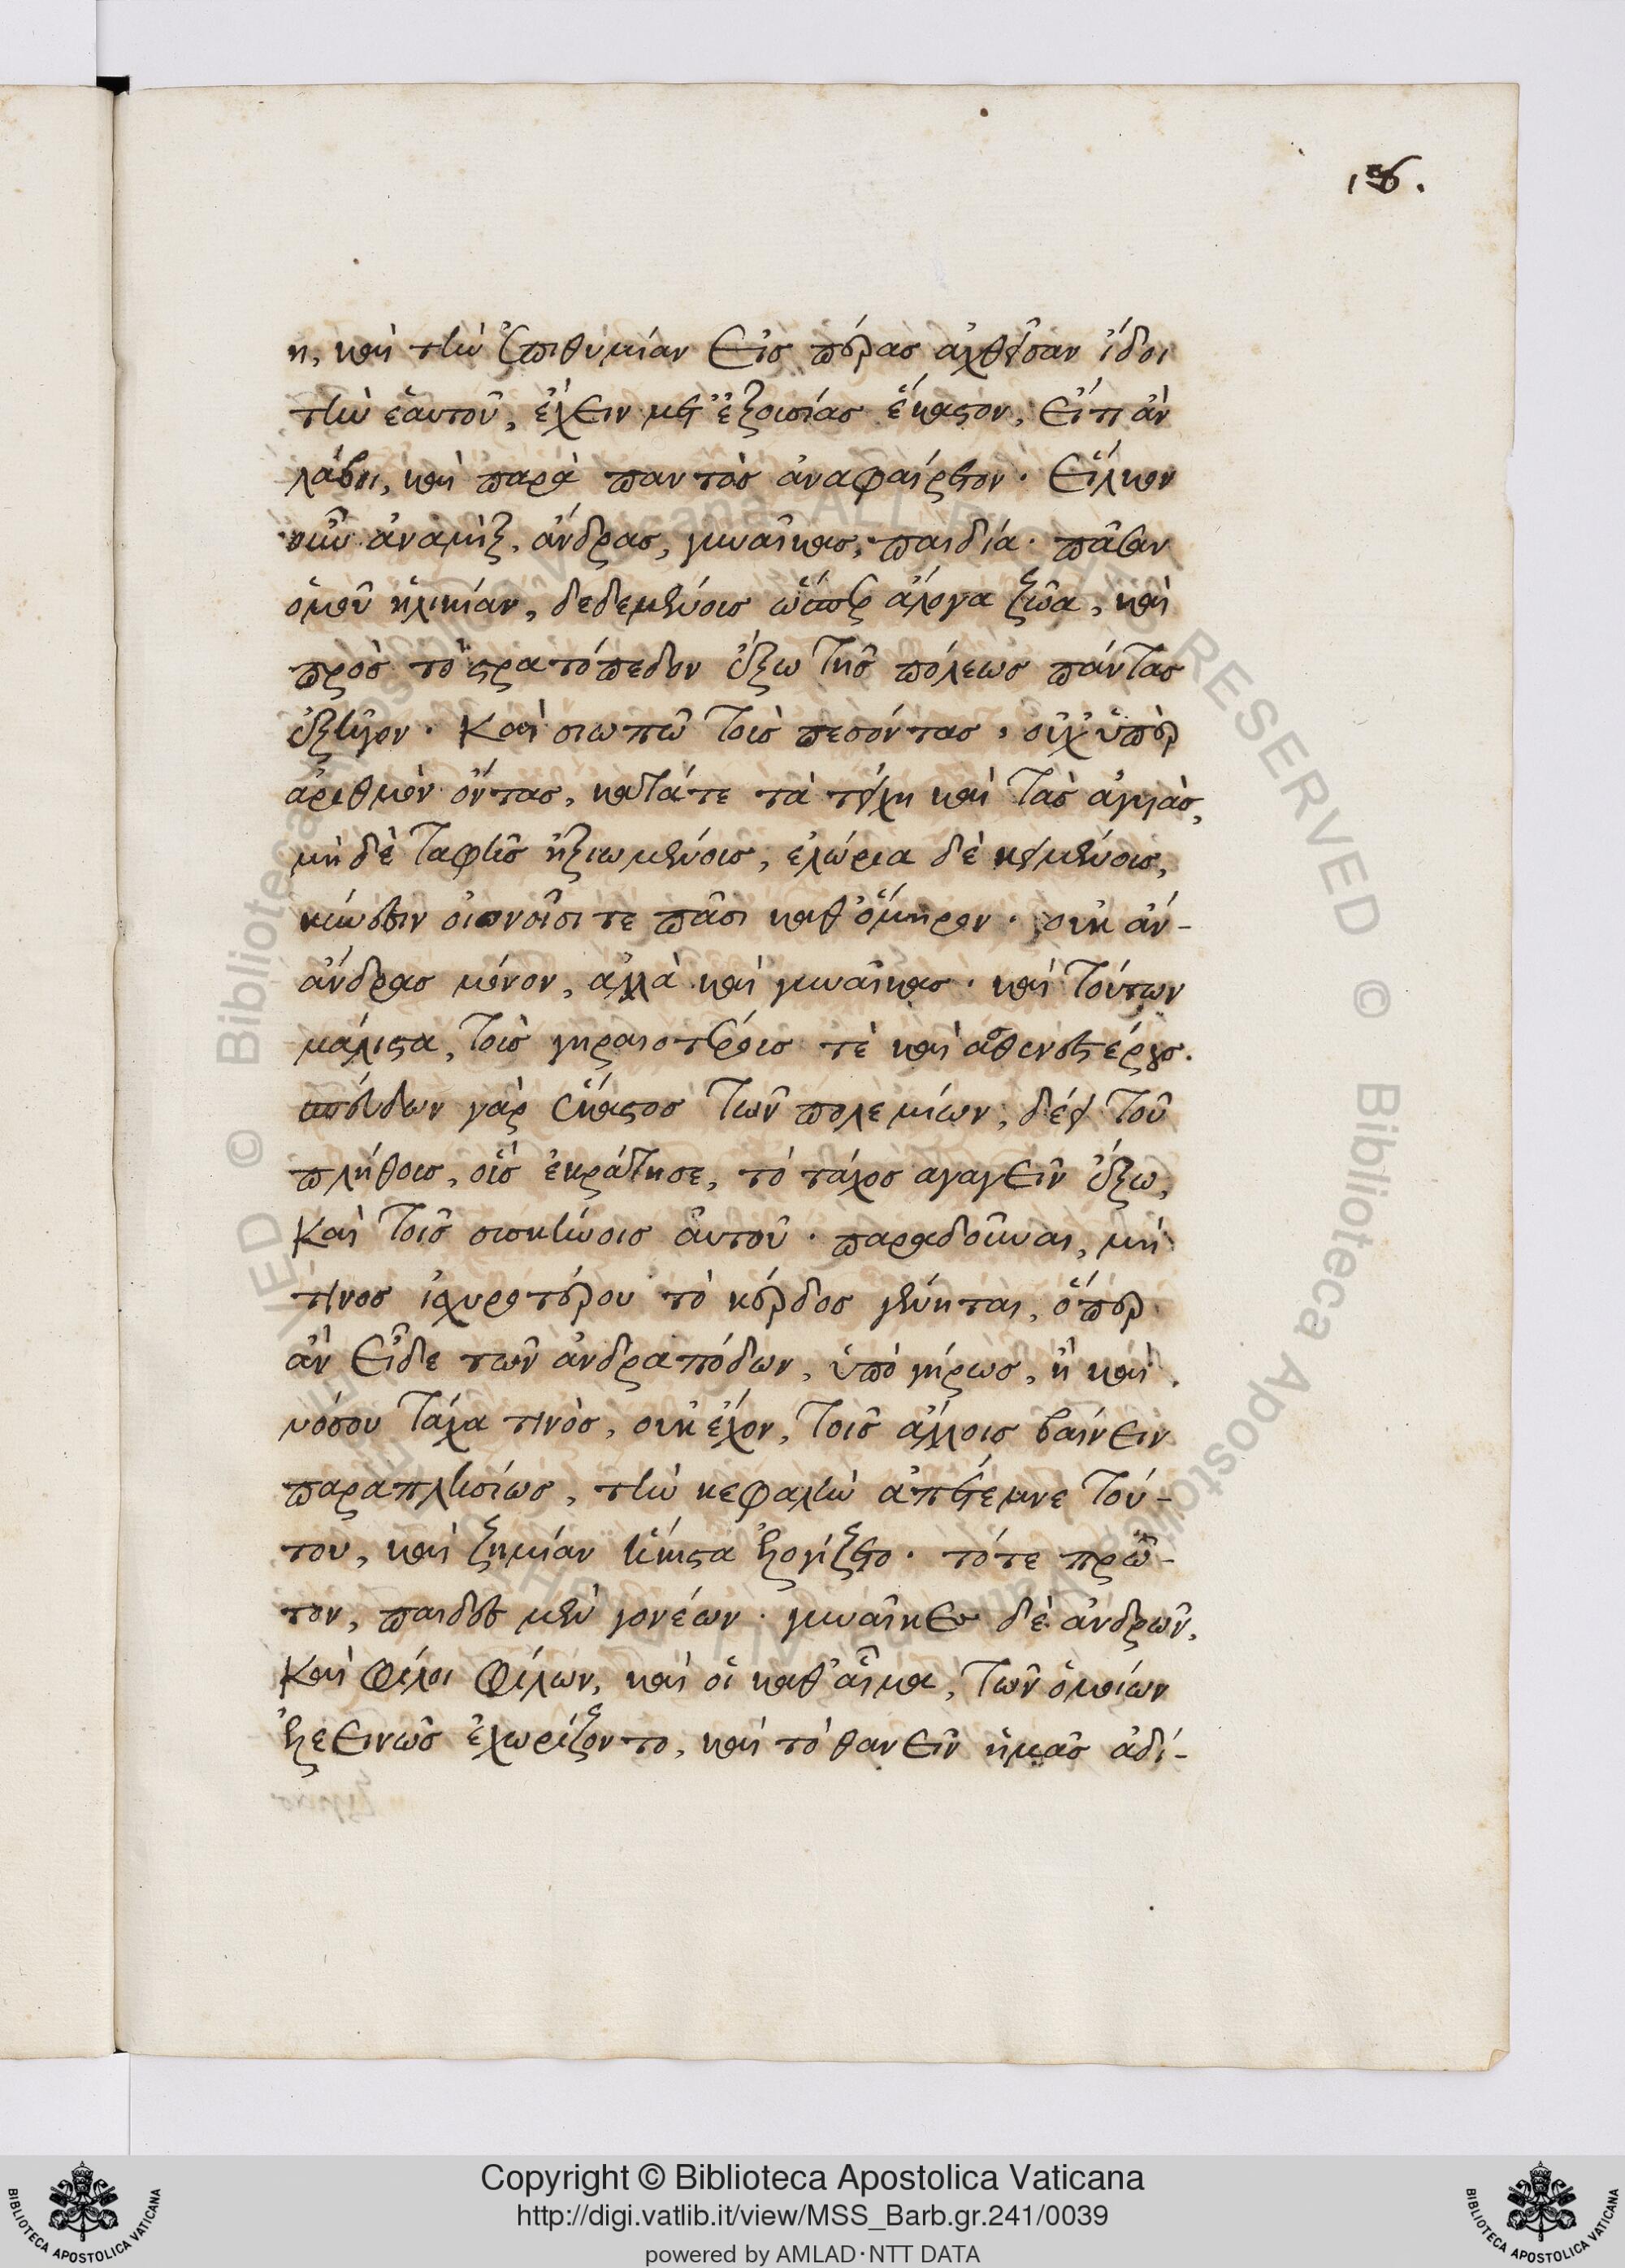 16.
η, καὶ τὴν ἐπιθυμίαν εἰς πέρας ἀχθεῖσαν ἴδοι
τὴν ἑαυτοῦ, ἔχειν μετ' ἐξουσίας ἕκαστον, εἴ τι ἂν
λάβοι, καὶ παρὰ παντὸς ἀναφαίρετον. εἷλκον
οὖν ἀναμὶξ, ἄνδρας, γυναῖκας, παιδία. πᾶσαν
ὁμοῦ ἡλικίαν, δεδεμένους ὥσπερ ἄλογα ζῶα, καὶ
πρὸς τὸ στρατόπεδον ἔξω τῆς πόλεως πάντας
ἐξῆγον. Καὶ σιωπῶ τοὺς πεσόντας, οὐχ' ὑπὲρ
ἀριθμὸν ὄντας, κατά τε τὰ τείχη καὶ τὰς ἀγυιὰς,
μὴ δὲ ταφῆς ἠξιωμένους, ἑλώρια δὲ κειμένους,
κύνεσσιν οἰωνοῖσί τε πᾶσι καθ' ὅμηρον. οὐκ ἄν-
ἄνδρας μόνον, ἀλλὰ καὶ γυναῖκας. καὶ τούτων
μάλιστα, τοὺς γηραιοτέρους τὲ καὶ ἀσθενεστέρους.
σπεύδων γὰρ ἕκαστος τῶν πολεμίων, δέει τοῦ
πλήθους, οὓς ἐκράτησε, τὸ τάχος αγαγεῖν ἔξω,
Καὶ τοῖς συσκήνοις αὐτοῦ. παραδοῦναι, μή
τινος ἰσχυροτέρου τὸ κέρδος γένηται, ὅπερ
ἂν εἶδε τῶν ἀνδραπόδων, ὑπὸ γήρως, ἢ καὶ
νόσου τάχα τινὸς, οὐκ ἔχον, τοῖς ἄλλοις βαίνειν
παραπλησίως, τὴν κεφαλὴν ἀπέτεμνε τού-
του, καὶ ζημίαν ἥκιστα ἐλογίζετο. τότε πρῶ-
τον, παῖδες μὲν γονέων. γυναῖκες δὲ ἀνδρῶν,
Καὶ φίλοι φίλων, καὶ οἱ καθ' αἷμα, τῶν ὁμοίων
ἐλεεινῶς ἐχωρίζοντο, καὶ τὸ θανεῖν ἡμᾶς ἀδί-
Copyright © Biblioteca Apostolica Vaticana
http://digi.vatlib.it/view/MSS_Barb.gr.241/0039
powered by AMLAD·NTT DATA